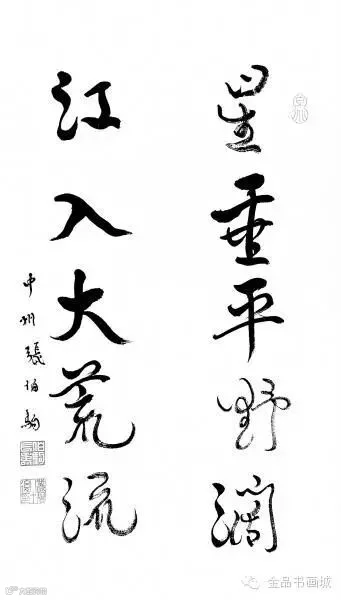 星垂平野濶
江入大荒流
中州張伯駒
金品书画城